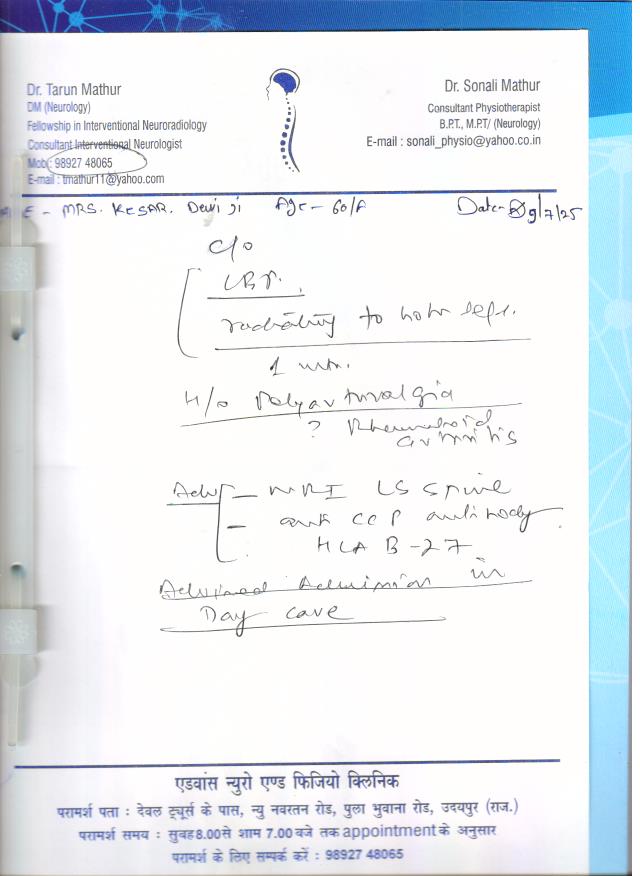 Dr. Tarun Mathur
DM (Neurology)
Fellowship in Interventional Neuroradiology
Consultant Interventional Neurologist
Mob.: 98927 48065
E-mail : tmathur11@yahoo.com
Dr. Sonali Mathur
Consultant Physiotherapist
B.P.T., M.P.T/ (Neurology)
E-mail : sonali_physio@yahoo.co.in
E - MRS. KESAR. Devi ji Age - 60/ Date- 9/7/25
C/o
radiating to both legs.
H/o Polyarthralgia
? Rheumatoid
arthritis
Adv - MRI LS spine
- anti CCP antibody
HLA B-27
Advised Admission in
Day care
एडवांस न्युरो एण्ड फिजियो क्लिनिक
परामर्श पता : देवल ट्यूर्स के पास, न्यु नवरतन रोड, पुला भुवाना रोड, उदयपुर (राज.)
परामर्श समय : सुबह 8.00 से शाम 7.00 बजे तक appointment के अनुसार
परामर्श के लिए सम्पर्क करें : 98927 48065